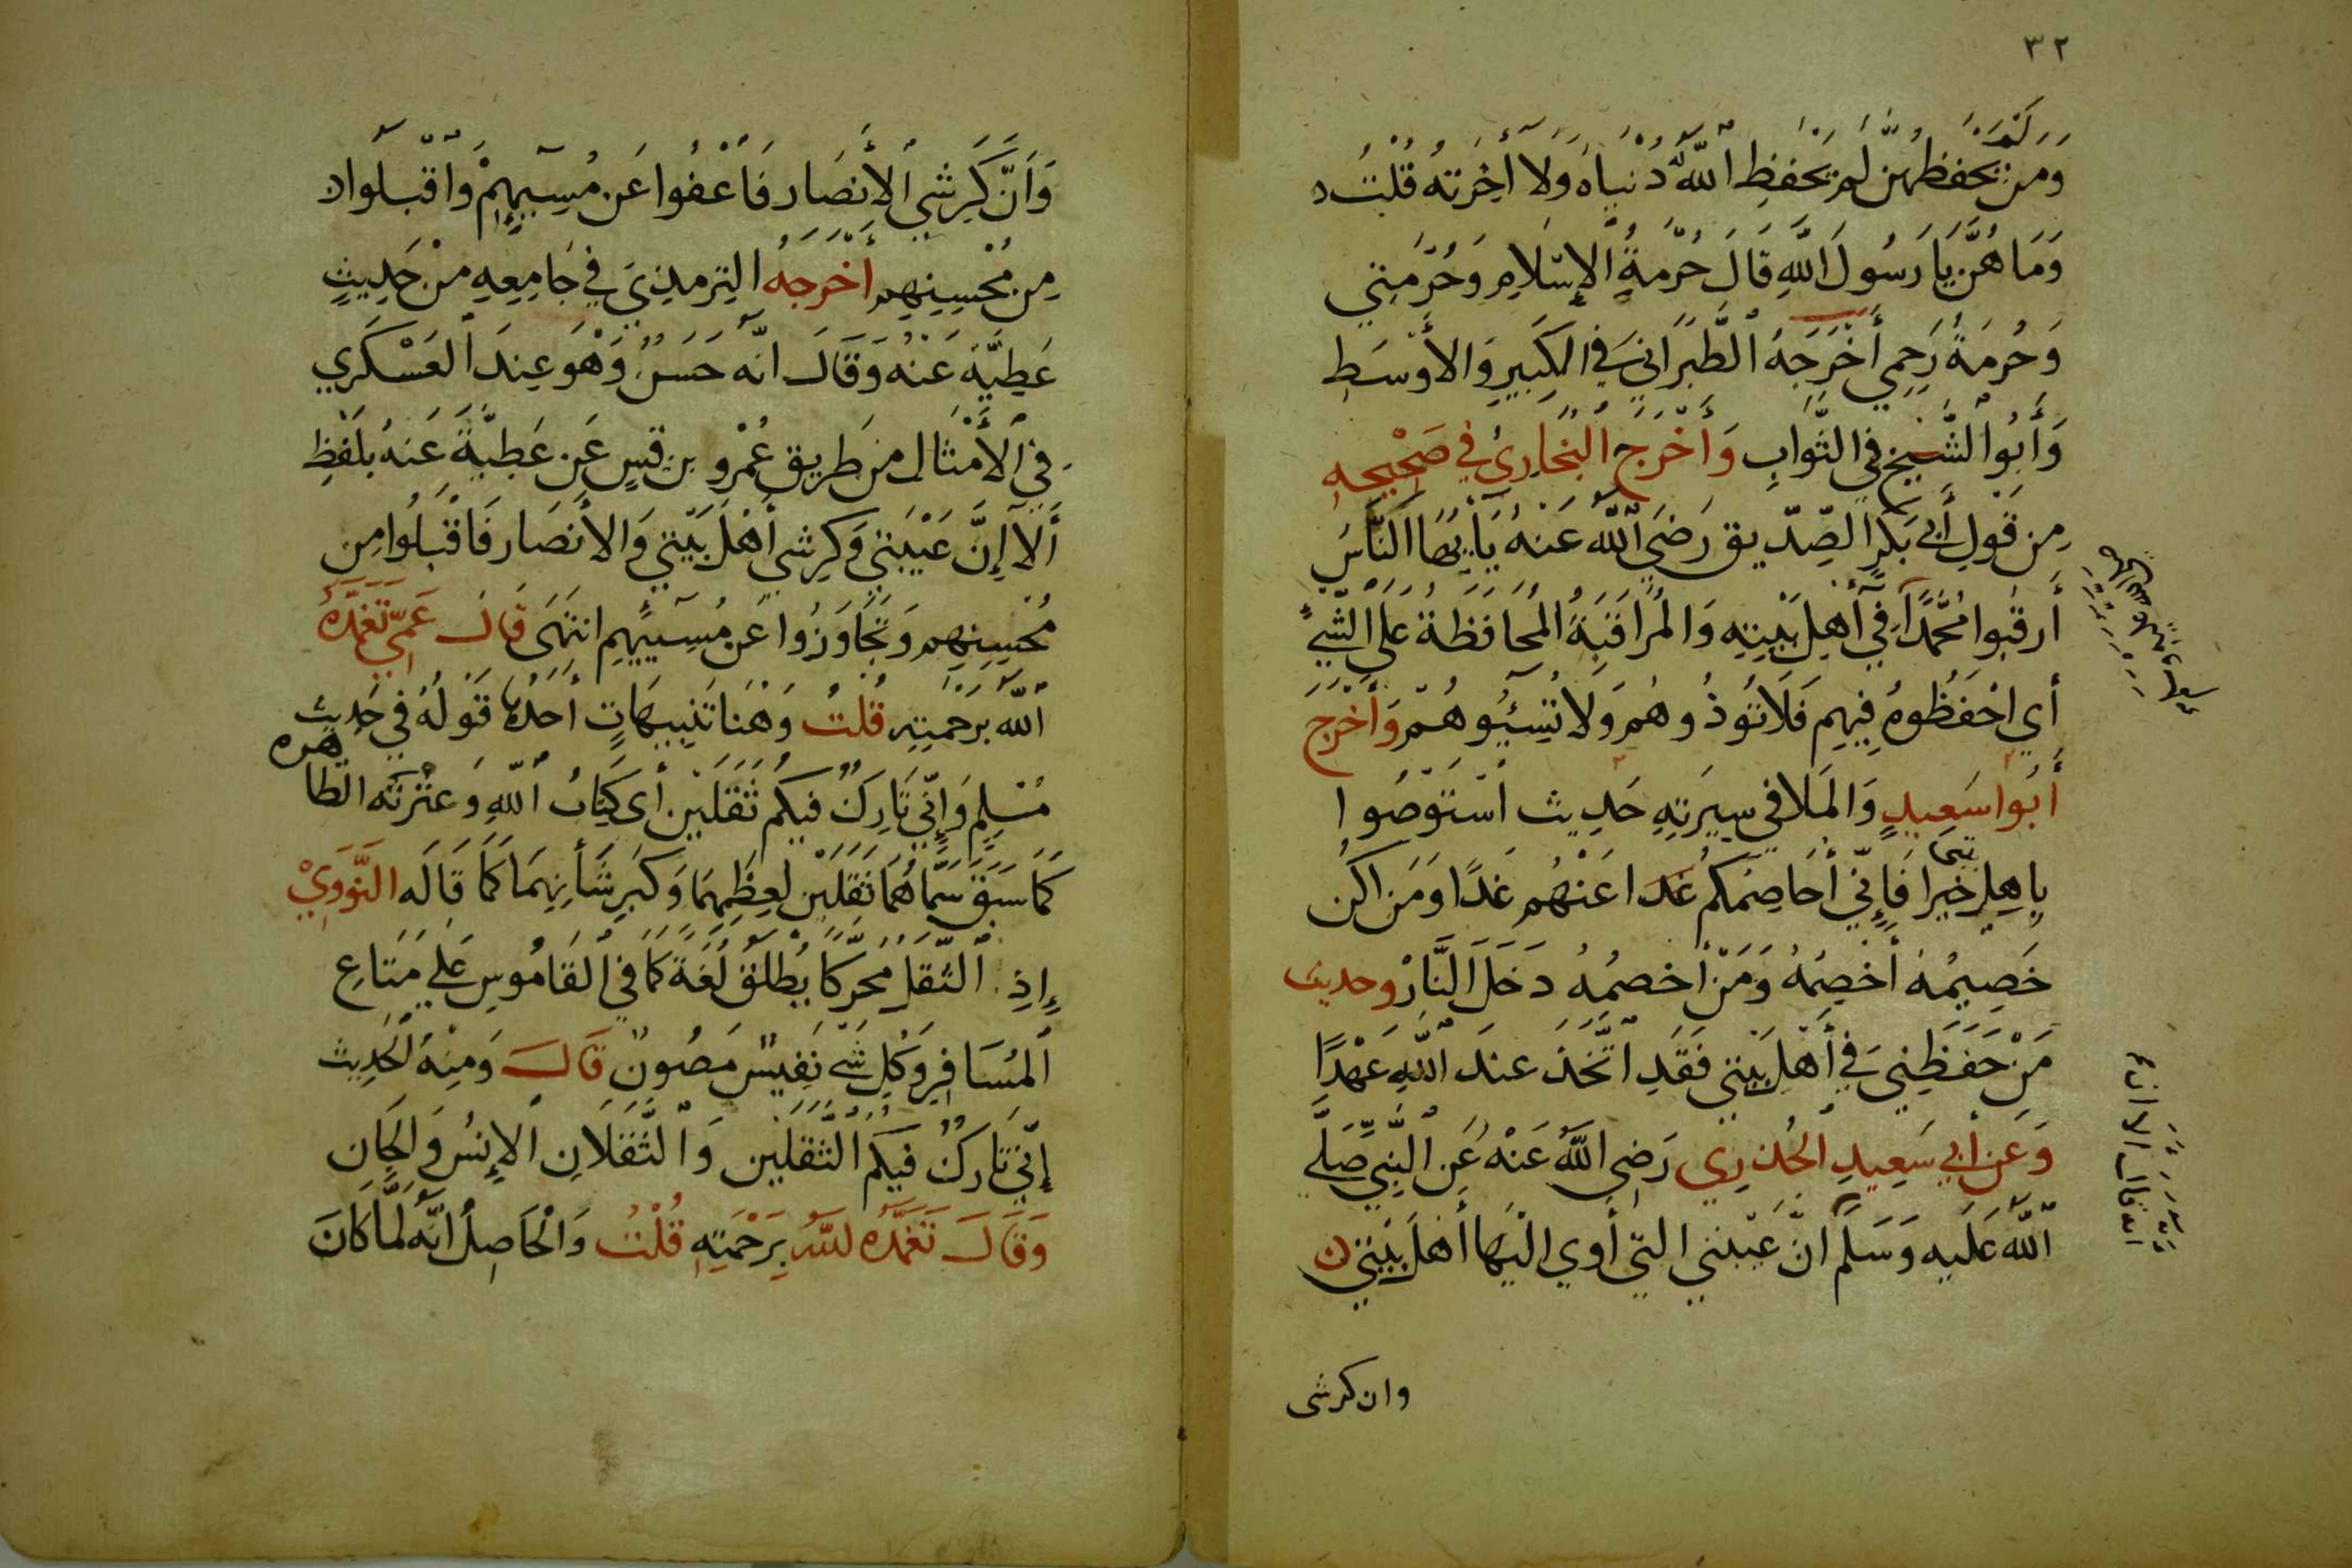 ٣٢
وَمَن لَمْ يَحفظهُنَّ لم يَحْفَظِ اللهُ دُنْيَاهُ وَلَا أخِرَتَهُ قُلْتُ
وَمَا هُنَّ يَا رَسُولَ اللهِ قَالَ حُرْمَةُ الْإسْلَامِ وَحُرْمَتِي
وَحُرْمَةُ رَحِمِي أَخْرَجَهُ الطَّبَرَانِيَ فِي الكَبِيرِ وَالأَوْسَطِ
وَأَبُوا الشَّيْخِ فِي الثَّوَابِ وَأَخْرَجَ الْبُخَارِيُ فِي صَحِيْحِهِ
مِن قَولِ أَبي بَكرٍ الصِّدّيق رَضيَ اللهُ عَنْهُ يَأَيّهَا النَّاسُ
أَرقبُوا مُحَمَّدًا فِي أَهْلِ بَيْتِهِ وَالمُرَاقَبَةُ المُحَافَظَةُ عَلَى الشَّيْءِ
أي احْفَظُوهُ فِيهِم فَلَا تُوذُوهُم وَلَا تُسِيُوهُمْ وَأَخْرَجَ
أَبُوا سَعِيدٍ وَالمَلا في سِيرَتِهِ حَدِيث اسْتَوْصُوا
بِاهِل بيتي خيرا فَإِنّي أُخَاصِمُكُم غَدا عَنْهُم غَدًا وَمَن اكُن
خَصِيمُهُ أَخْصِمهُ وَمَنْ أخصمُهُ دَخَلَ النَّارْ وحديث
مَنْ حَفَظِنِيَ فِي أَهْلِ بَيْتي فَقَدِ اتَّخَذَ عندَ اللهِ عَهْدًا
وَعَن أبي سَعِيدِ الخُدْرِي رَضِي اللهُ عَنْهُ عَنِ النَّبِيِّ صَلَّى
اللهُ عَلَيهِ وَسَلَّمَ انَّ عَيْبتي التِّي أَوي الَيْهَا أَهْلَ بَيْتي
وان كرشى
وَأَنَّ كَرِشِي الأَنصَار فَاعْفُوا عَن مُسِيِّهِمْ وَاقْبَلُوا
مِن مُحْسِنِهِم أَخْرَجَهُ التِرمذِيَ فِي جَامِعِهِ مِنْ حَدِيثِ
عَطِيَّةَ عَنْهُ وَقَالَ انّه حَسَنٌ وَهْوَ عِندَ العَسْكَرِي
فِي الأَمْثَال من طَرِيق عُمْرِو بن قيسٍ عَن عَطِيَّةَ عَنهُ بِلَفظِ
أَلَا إِنَّ عَيْبَتي وَكرِشي أَهْلَ بَيْتي وَالأَنصَار فَاقْبَلُوا مِن
مُحْسِنِهِم وَتَجَاوَزُوا عَن مُسِيّهِم انتَهَى قَالَ عَمِّي تَغَمَّدَهُ
اللهُ بِرَحْمَتِهِ قُلتُ وَهُنَا تَنْبِيهَاتٍ أَحَدُهَا قَوْلُهُ في حَدِيثِ
مُسْلِمٍ وَإِنّي تَارِكٌ فيكُم ثَقَلَيْن أي كِتَابُ اللهِ وَعِتْرتَه الطا
هره
كَمَا سَبَقَ سَمَّاهُمَا ثَقَلَيْن لِعِظَمِهِمَا وَكَبِرِ شَأنِهِمَا كَمَا قَالَه النَّوَوِيْ
إِذِ الثَّقَل محَرّكًا يُطْلَقُ لُغَةً كَمَا في القَامُوسِ عَلى مَتَاعِ
المُسَافِر وَكُلّ شَيْ نَفِيسٍ مَصُونٍ قَالَ وَمِنْهُ الحَدِيث
إِنّي تَارِكٌ فيكُم الثَّقَلَيْن وَالثَّقَلَانِ الإِنسُ وَالجَان
وَقَالَ تَغَمَّدَهُ اللهُ بِرَحْمَتِهِ قُلْتُ وَالْحَاصِلُ انَّهُ لَمَّا كَانَ